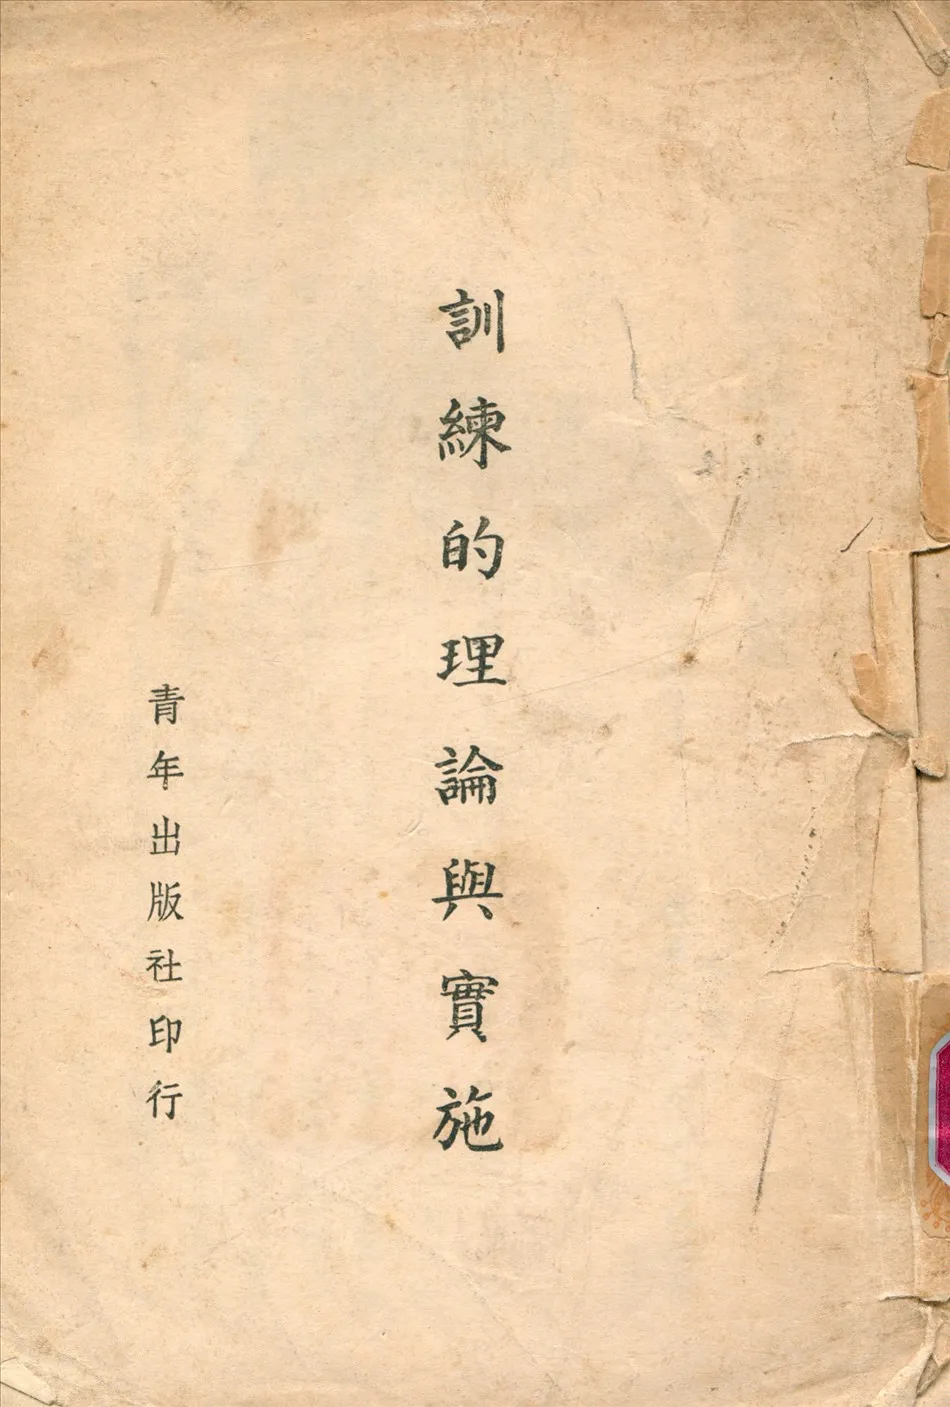 訓練的理論與實施
青年出版社印行